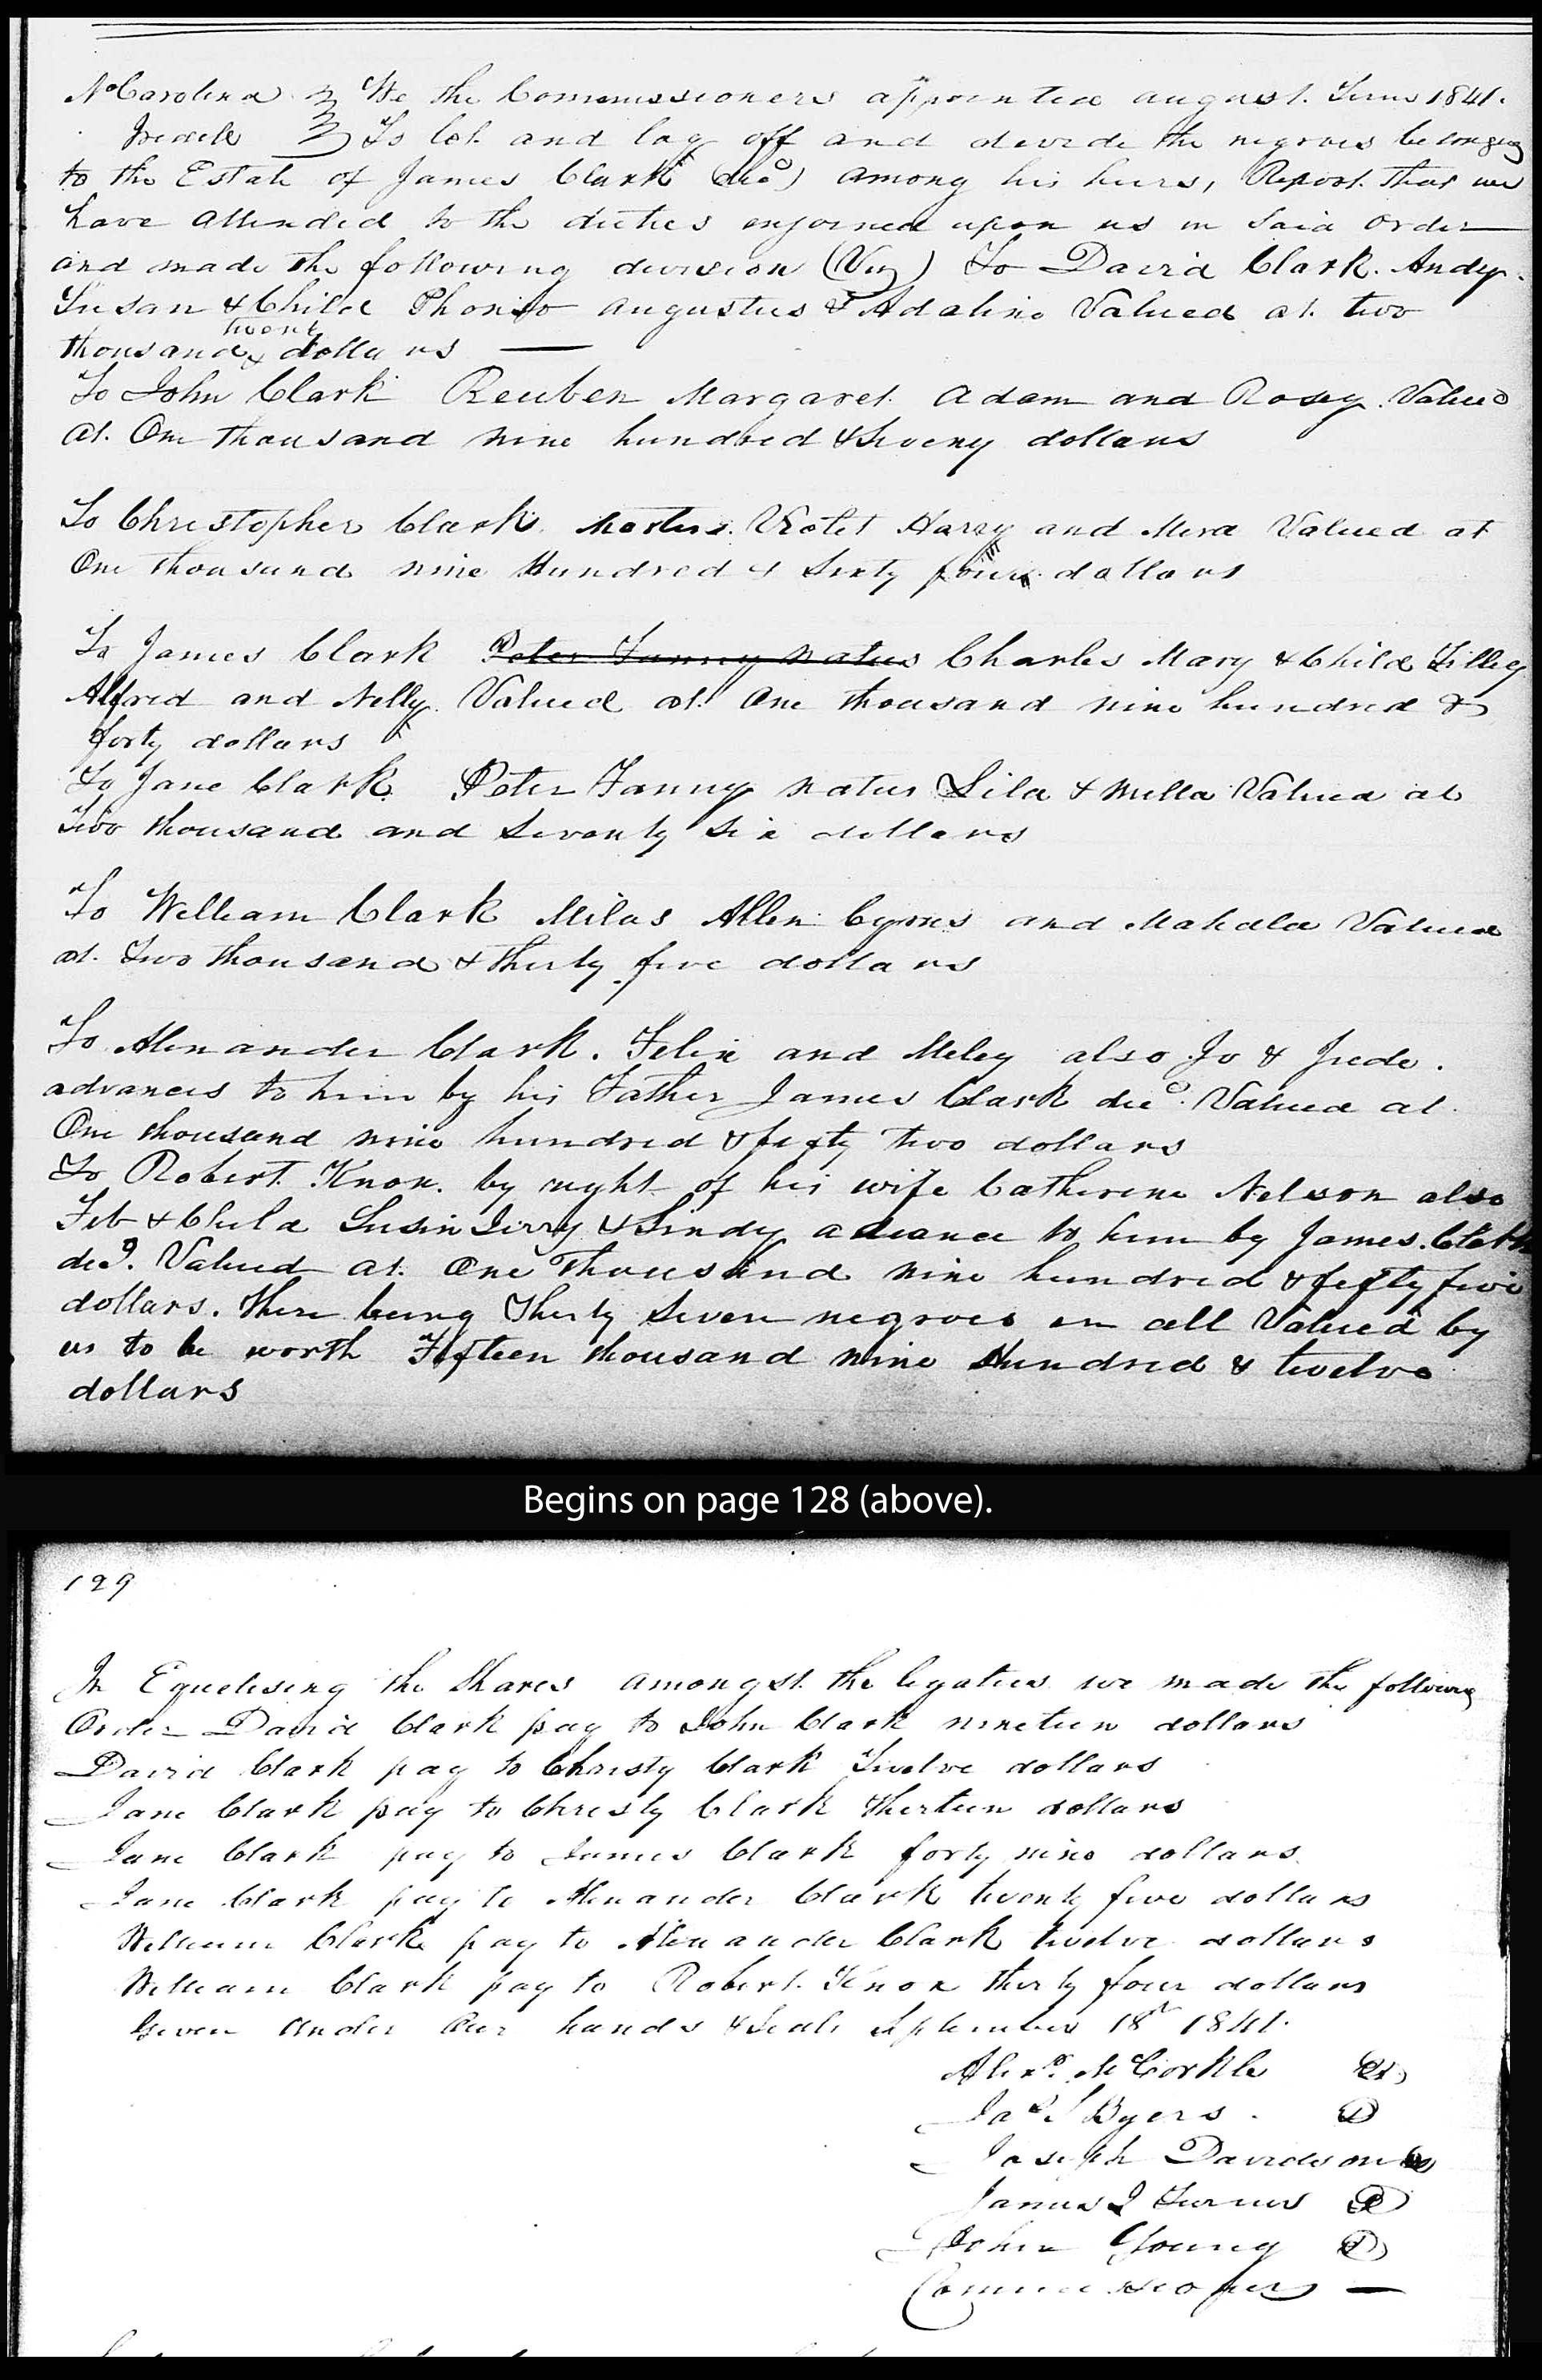 No Carolina We the Commissioners appointed august. Term 1841.
Iredell To lot and lay off and devide the negroes belonging
to the Estate of James Clark (decd) among his heirs, Report that we
have attended to the duties enjoined upon us in Said order
and made the following division (Viz) To David Clark. Andy.
Susan & Child augustus & Adaline Valued at two
twenty
thousand x dollars —
To John Clark Reuben Margaret Adam and Rosey Valued
at. One thousand nine hundred & dollars
To Christopher Clark Violet Harry and Mira Valued at
One thousand nine Hundred & Sixty four dollars
To James Clark Peter Fanny natus Charles Mary & Child Tilley
Alfred and Nelly. Valued at One thousand nine hundred &
forty dollars
To Jane Clark. Peter Fanny natus Sila & Milla Valued at
Two thousand and Seventy Six dollars
To William Clark Milas Allen Cyrus and Mahala Valued
at. Two thousand & thirty five dollars
To Alexander Clark. Felix and Meley also Jo & .
advances to him by his Father James Clark decd. Valued at.
One thousand nine hundred & fifty two dollars
To Robert Knox. by right of his wife Catherine Nelson also
Feb & Child Susin Jerry & Lindy advance to him by James. Clark
decd. Valued at. One Thousand nine hundred & fifty five
dollars. there being Thirty Seven negroes in all Valued by
us to be worth Fifteen thousand nine Hundred & twelve
dollars
Begins on page 128 (above).
129
In Equelising the Shares amongst the legatees we made the following
Order David Clark pay to John Clark nineteen dollars
David Clark pay to Christy Clark Twelve dollars
Jane Clark pay to Christy Clark Thirteen dollars
Jane Clark pay to James Clark forty nine dollars
Jane Clark pay to Alexander Clark twenty five dollars
William Clark pay to Alexander Clark twelve dollars
William Clark pay to Robert Knox thirty four dollars
Given under Our hands & Seals September 18th 1841.
Alexr. McCorkle
Jas. S Byers.
Joseph Davidson
James J Turner
John Young
Commissioners —